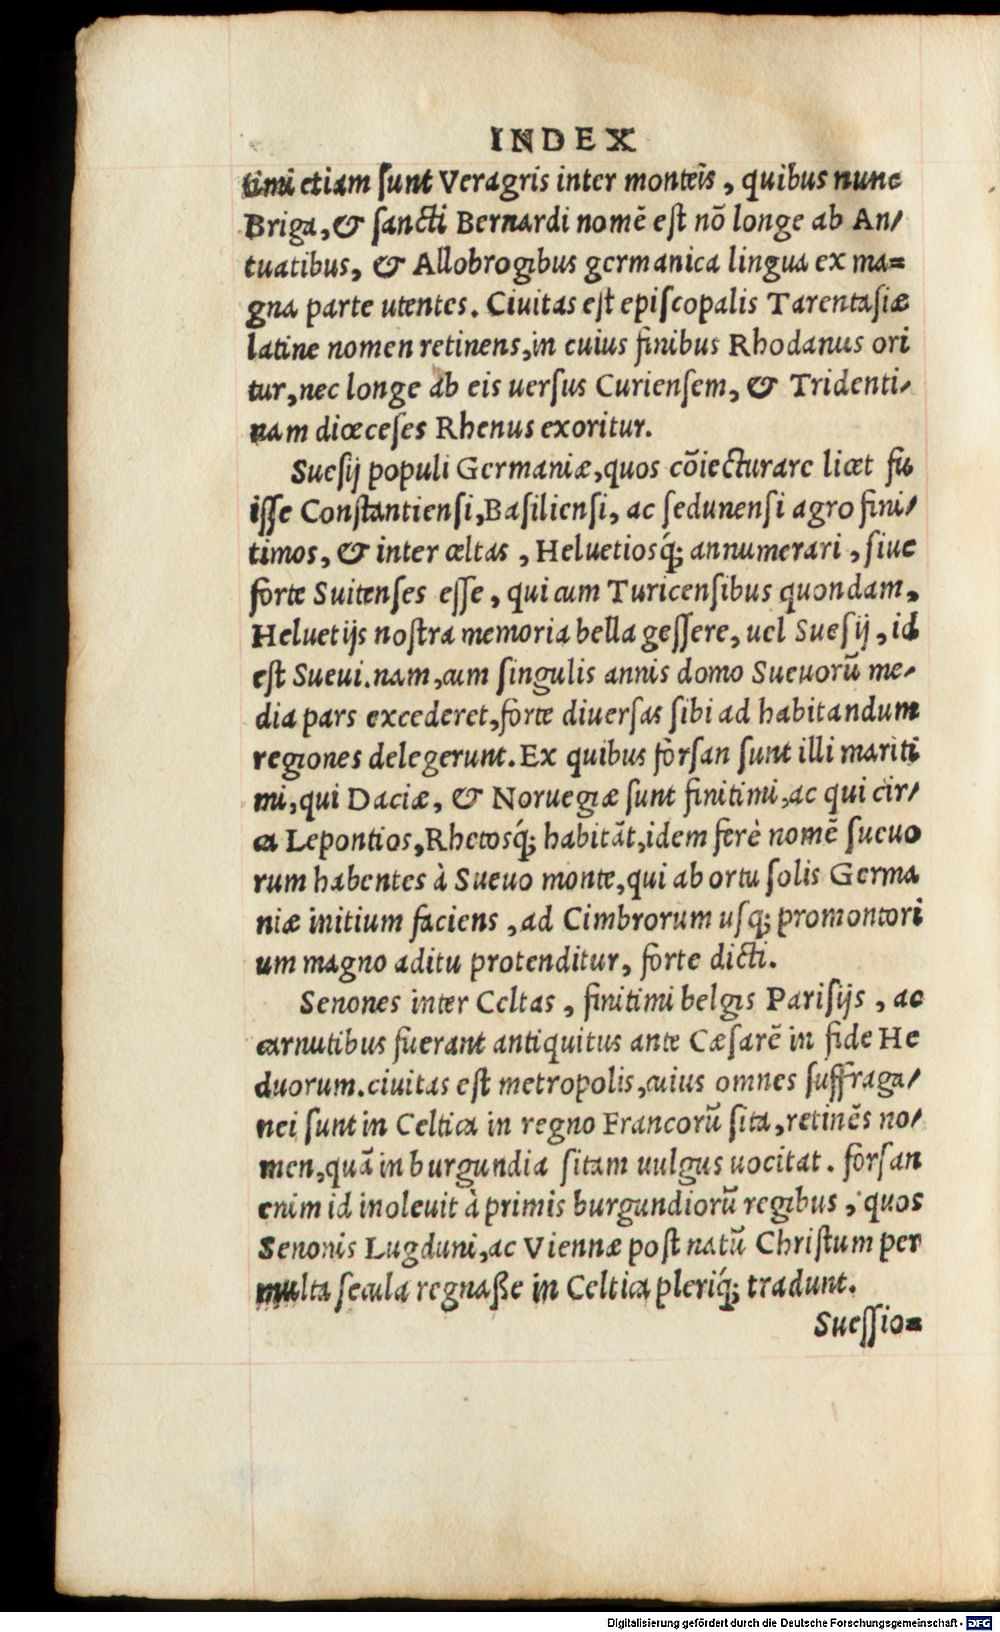 INDEX
timi etiam ſunt Veragris inter monteis, quibus nunc
Briga, & ſancti Bernardi nomē eſt nō longe ab An/
tuatibus, & Allobrogibus germanica lingua ex ma=
gna parte utentes. Ciuitas eſt epiſcopalis Tarentaſiæ
latine nomen retinens, in cuius finibus Rhodanus ori
tur, nec longe ab eis uerſus Curienſem, & Tridenti/
nam diœceſes Rhenus exoritur.
Sueſij populi Germaniæ, quos cōiecturare licet fu
iſſe Conſtantienſi, Baſilienſi, ac ſedunenſi agro fini/
timos, & inter celtas, Heluetiosq́; annumerari, ſiue
forte Suitenſes eſſe, qui cum Turicenſibus quondam,
Heluetijs noſtra memoria bella geſſere, uel Sueſij, id
eſt Sueui. nam, cum ſingulis annis domo Sueuorū me/
dia pars excederet, forte diuerſas ſibi ad habitandum
regiones delegerunt. Ex quibus forſan ſunt illi mariti
mi, qui Daciæ, & Noruegiæ ſunt finitimi, ac qui cir/
ca Lepontios, Rhetosq́; habitāt, idem ferè nomē ſueuo
rum habentes à Sueuo monte, qui ab ortu ſolis Germa
niæ initium faciens, ad Cimbrorum uſq; promontori
um magno aditu protenditur, forte dicti.
Senones inter Celtas, finitimi belgis Pariſijs, ac
carnutibus fuerant antiquitus ante Cæſarē in fide He
duorum. ciuitas eſt metropolis, cuius omnes ſuffraga/
nei ſunt in Celtica in regno Francorū ſita, retinēs no/
men, quā in burgundia ſitam uulgus uocitat. forſan
enim id inoleuit à primis burgundiorū regibus, quos
Senonis Lugduni, ac Viennæ poſt natū Chriſtum per
multa ſecula regnaße in Celtica pleriq́; tradunt.
Sueſſio=
Digitalisierung gefördert durch die Deutsche Forschungsgemeinschaft - DFG